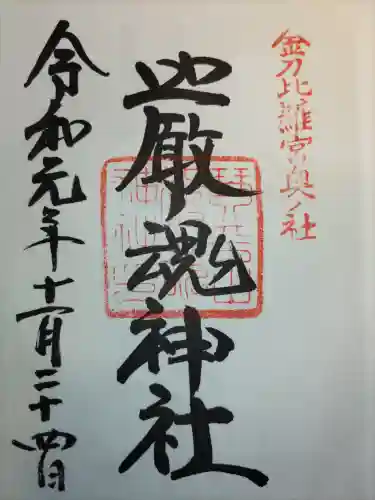 金刀比羅宮奥ノ社
巌魂神社
令和元年十一月二十四日